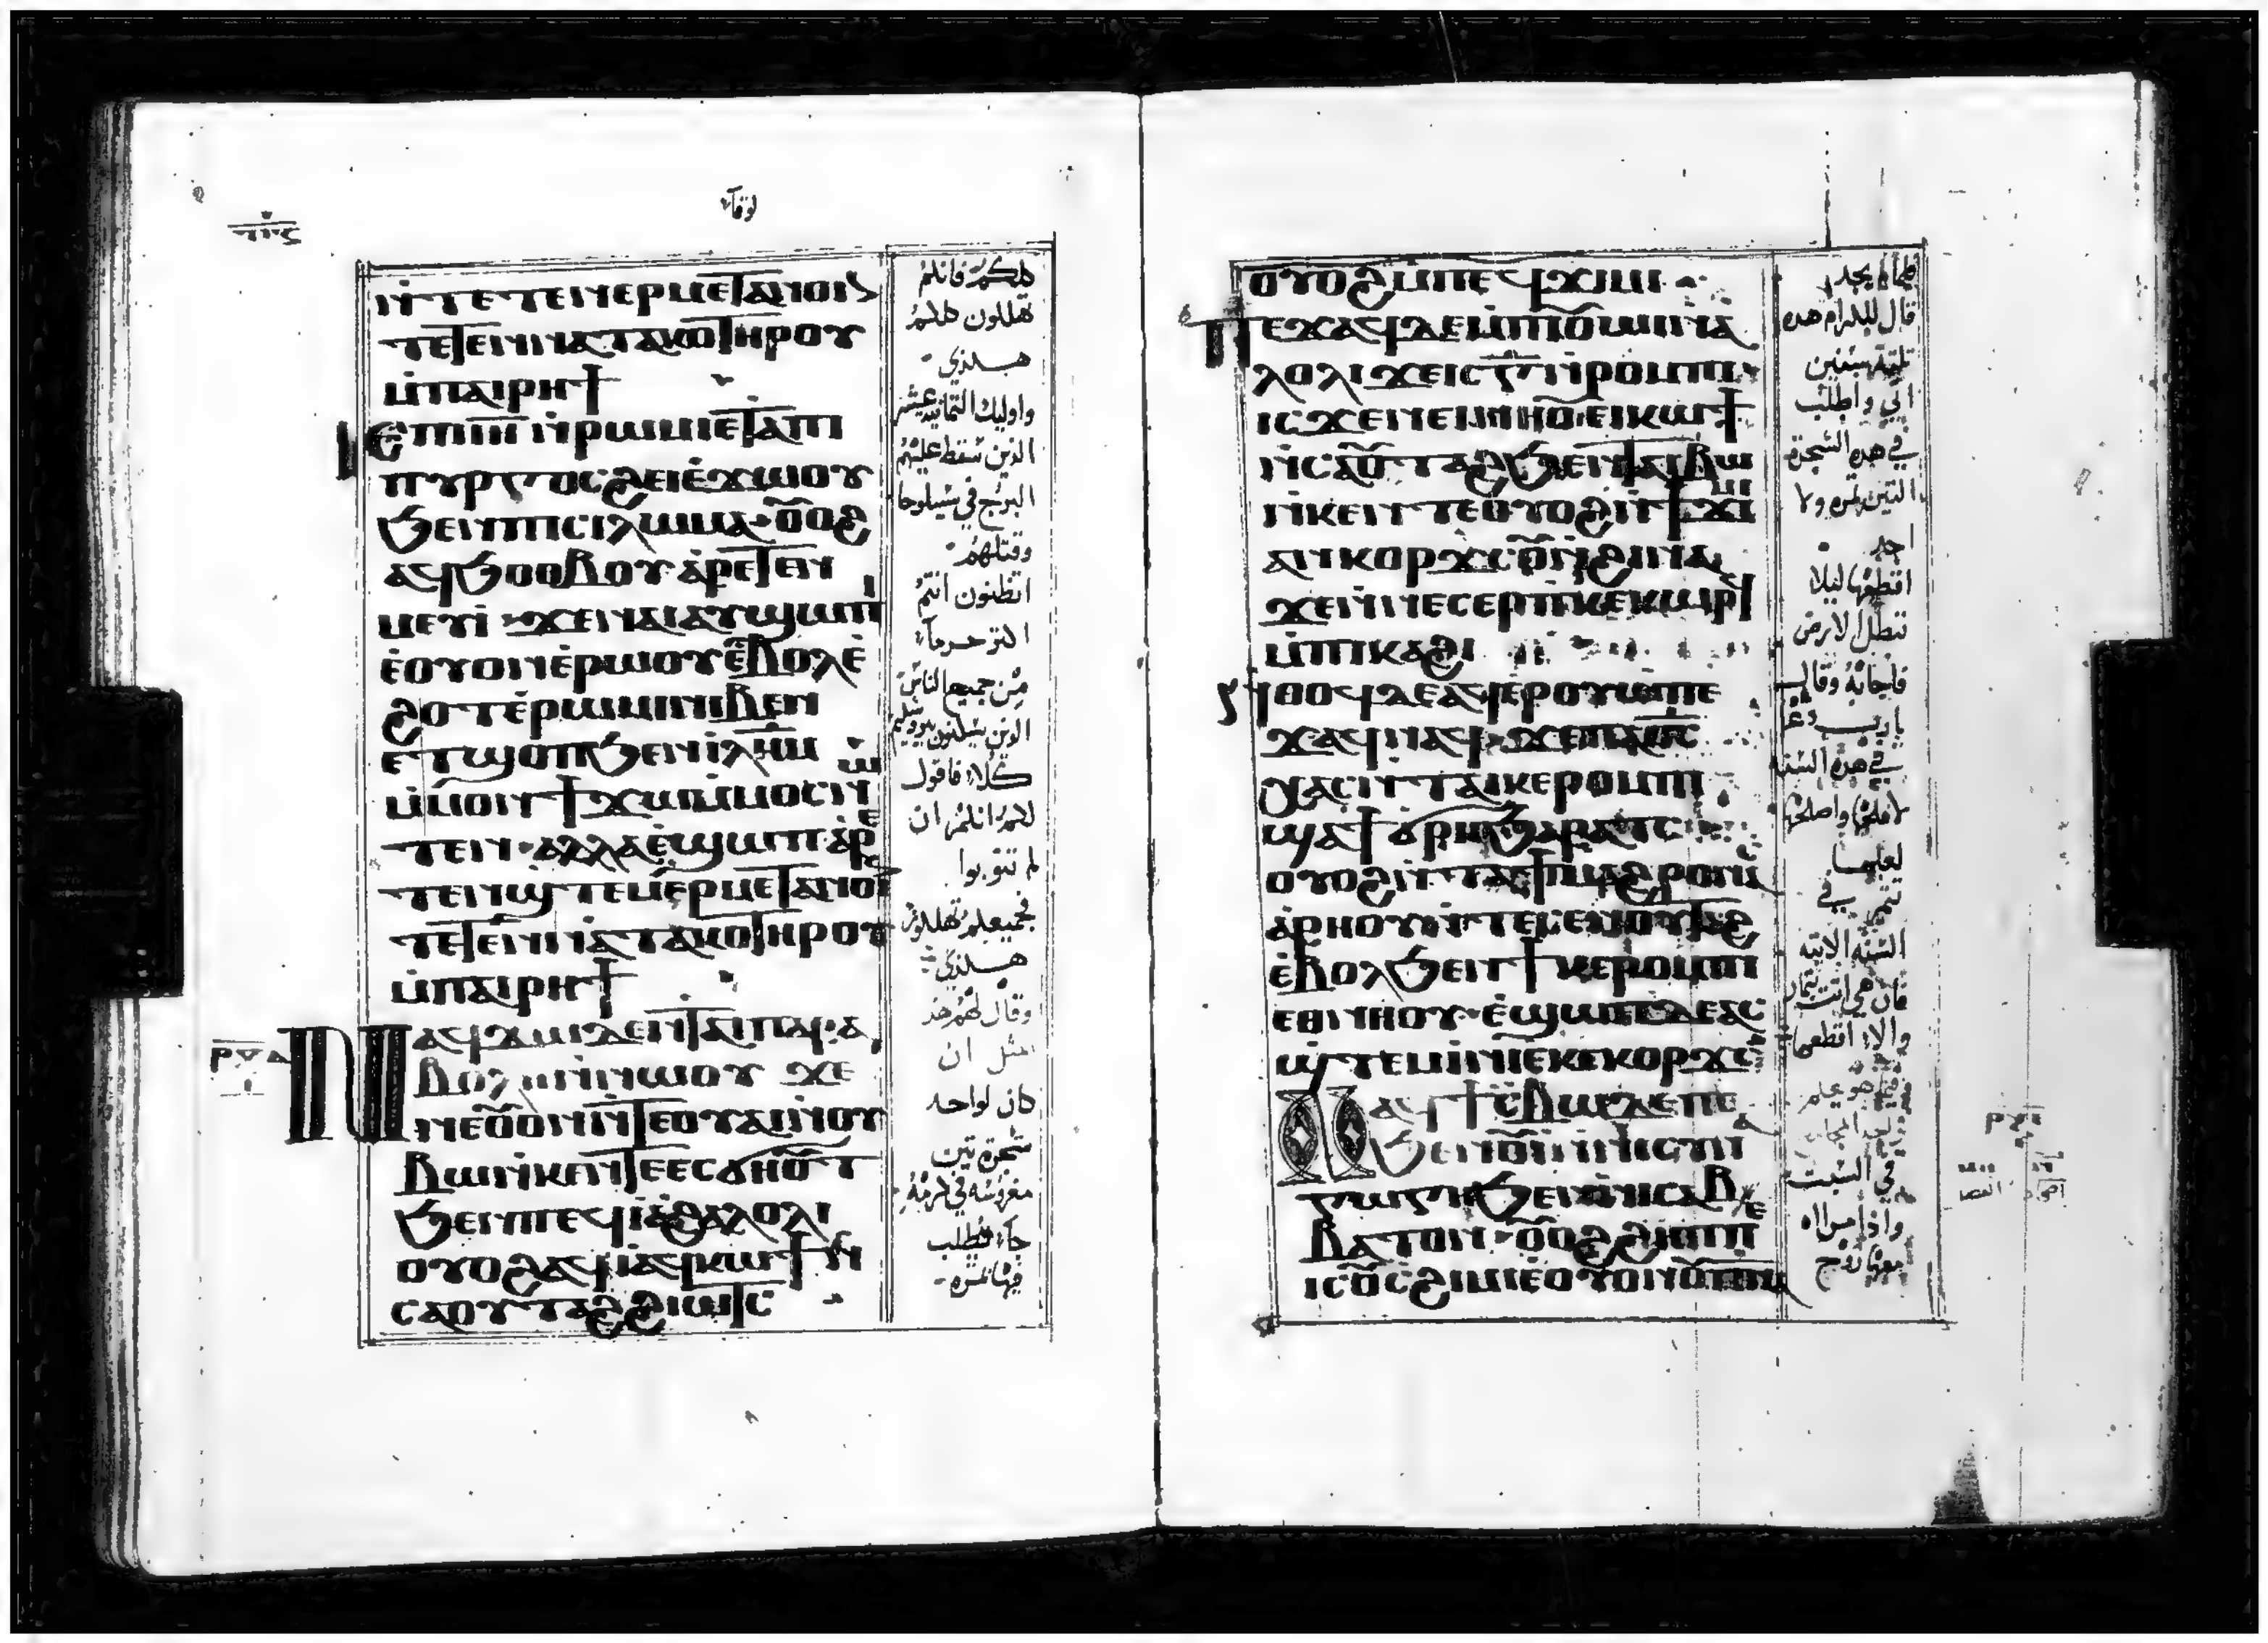 لوقا
ⲛ̀ⲧⲉⲧⲉⲛⲉⲣⲙⲉⲧⲁⲛⲟⲓⲛ
ⲧⲉⲧⲉⲛⲛⲁⲧⲁⲕⲟⲧⲏⲣⲟⲩ
ⲙ̀ⲡⲁⲓⲣⲏϯ
ⲓⲉ ⲡⲓⲓⲏ ⲛ̀ⲣⲱⲙⲓⲉⲧⲁⲡⲓ
ⲡⲩⲣⲅⲟⲥϩⲉⲓⲉ̀ϫⲱⲟⲩ
ϧⲉⲛⲡⲓⲥⲓⲗⲱⲁⲙ ⲟⲩⲟϩ
ⲁϥϧⲟⲑⲃⲟⲩ ⲁ̀ⲣⲉⲧⲉⲛ
ⲙⲉⲩⲓ ϫⲉⲛⲁⲓⲁⲩϣⲱⲡⲓ
ⲉ̀ⲟⲩⲟⲛⲉ̀ⲣⲱⲟⲩⲉ̀ⲃⲟⲗⲉ̀
ϩⲟⲧⲉ̀ⲣⲱⲙⲓⲛⲓⲃⲉⲛ
ⲉⲧϣⲟⲡϧⲉⲛⲓⲗⲏⲙ
ⲙ̀ⲙⲟⲛϯϫⲱⲙ̀ⲙⲟⲥⲛⲱ
ⲧⲉⲛ ⲁⲗⲗⲁⲉ̀ϣⲱⲡ ⲁ̀ⲣⲉ
ⲧⲉⲛϣ̀ⲧⲉⲙⲉ̀ⲣⲙⲉⲧⲁⲛⲟⲓⲛ
ⲧⲉⲧⲉⲛⲛⲁⲧⲁⲕⲟⲧⲏⲣⲟⲩ
ⲙ̀ⲡⲁⲓⲣⲏϯ
ⲛⲁϥϫⲱⲇⲉⲛ̀ⲧⲁⲓⲡⲁⲣⲁ
ⲃⲟⲗⲏⲛⲱⲟⲩ ϫⲉ
ⲛⲉⲟⲩⲟⲛⲛ̀ⲧⲉⲟⲩⲁⲓⲛ̀ⲟⲩ
ⲃⲱⲛ̀ⲕⲉⲛⲧⲉⲉⲥϭⲏⲟⲩⲧ
ϧⲉⲛⲡⲉϥⲓⲁϩⲁⲗⲟⲗⲓ
ⲟⲩⲟϩⲁϥⲓⲁϥⲕⲱϯⲛ̀
ⲥⲁⲟⲩⲧⲁϩϩⲓⲱⲧⲥ
كلكم فانكم
تهلكون كلكم
هكذي
واوليك الثمانيه عشر
الذين سقط عليهم
البرج في سيلوحا
وقتلهم
اتظنون انتم
من جميع الناس
الذين يسكنون يروشليم
كلا فاقول
لكم انكم ان
لم تتوبوا
فجميعكم تهلكون
هكذي
وقال لهم هذ
مثل ان
كان لواحد
شجرة تين
مغروسه في كرمه
جاء يطلب
فيها ثمره
ⲟⲩⲟϩⲙ̀ⲡⲉϥϫⲓⲙⲓ
ⲡⲉϫⲁϥⲇⲉⲙ̀ⲡⲓⲟⲩⲱⲓⲛ̀ⲓⲁ
ϩⲁⲗⲟⲗⲓϫⲉⲓⲥⲅ̅ⲛ̀ⲣⲟⲙⲡⲓ
ⲓⲥϫⲉⲛϯⲛⲏⲟⲩⲉⲓⲕⲱϯ
ⲛ̀ⲥⲁⲟⲩⲧⲁϩϧⲉⲛⲧⲁⲓⲃⲱ
ⲛ̀ⲕⲉⲛⲧⲉⲟⲩⲟϩⲛ̀ϯϫⲓⲙⲓ
ⲁⲛ ⲕⲟⲣϫⲥ ⲟⲩⲛ̀ϩⲓⲛⲁ
ϫⲉⲛ̀ⲛⲉⲥⲉⲣⲡⲕⲉⲕⲱⲣϥ
ⲙ̀ⲡⲓⲕⲁϩⲓ
ⲛ̀ⲑⲟϥⲇⲉⲁϥⲉ̀ⲣⲟⲩⲱⲡⲉ
ϫⲁϥⲛⲁϥ ϫⲉⲡⲁϭⲥ
ⲭⲁⲥⲛ̀ⲧⲁⲓⲕⲉⲣⲟⲙⲡⲓ
ϣⲁϯϭⲣⲏϧⲁⲣⲁⲧⲥ
ⲟⲩⲟϩⲛ̀ⲧⲁϯⲙⲁϩⲣⲟⲛⲁⲥ
ⲁ̀ⲣⲏⲟⲩⲛ̀ⲧⲉⲥⲉⲛⲟⲩⲧⲁϩ
ⲉ̀ⲃⲟⲗϧⲉⲛϯⲕⲉⲣⲟⲙⲡⲓ
ⲉⲑⲛⲏⲟⲩ ⲉ̀ϣⲱⲡⲇⲉⲁⲥ
ϣ̀ⲧⲉⲙⲓ̀ⲛⲓⲉⲕⲉⲕⲟⲣϫⲥ
ⲛⲁϥϯⲥⲃⲱⲇⲉⲡⲉ
ϧⲉⲛⲟⲩⲓⲛ̀ⲛⲓⲥⲩⲛ
ⲁⲅⲱⲅⲏϧⲉⲛⲛⲓⲥⲁⲃ
ⲃⲁⲧⲟⲛ ⲟⲩⲟϩϩⲏⲡⲡⲉ
ⲓⲥⲟⲩⲥϩⲓⲙⲓⲉ̀ⲟⲩⲟⲛⲟⲩⲡⲛⲁ
فلم يجد
قال للكرام هذه
ثلثة سنين
اتي واطلب
في هذه الشجره
التين ثمره ولا
اجد
اقطعها ليلا
تبطل الارض
فاجابه وقال
يارب دع
في هذه السنه
لافلح واصلح
لعلها
تثمر في
السنه الاتيه
فان هي اتت بثمار
والا اقطعها
في السبت
واذا مراه
معها روح